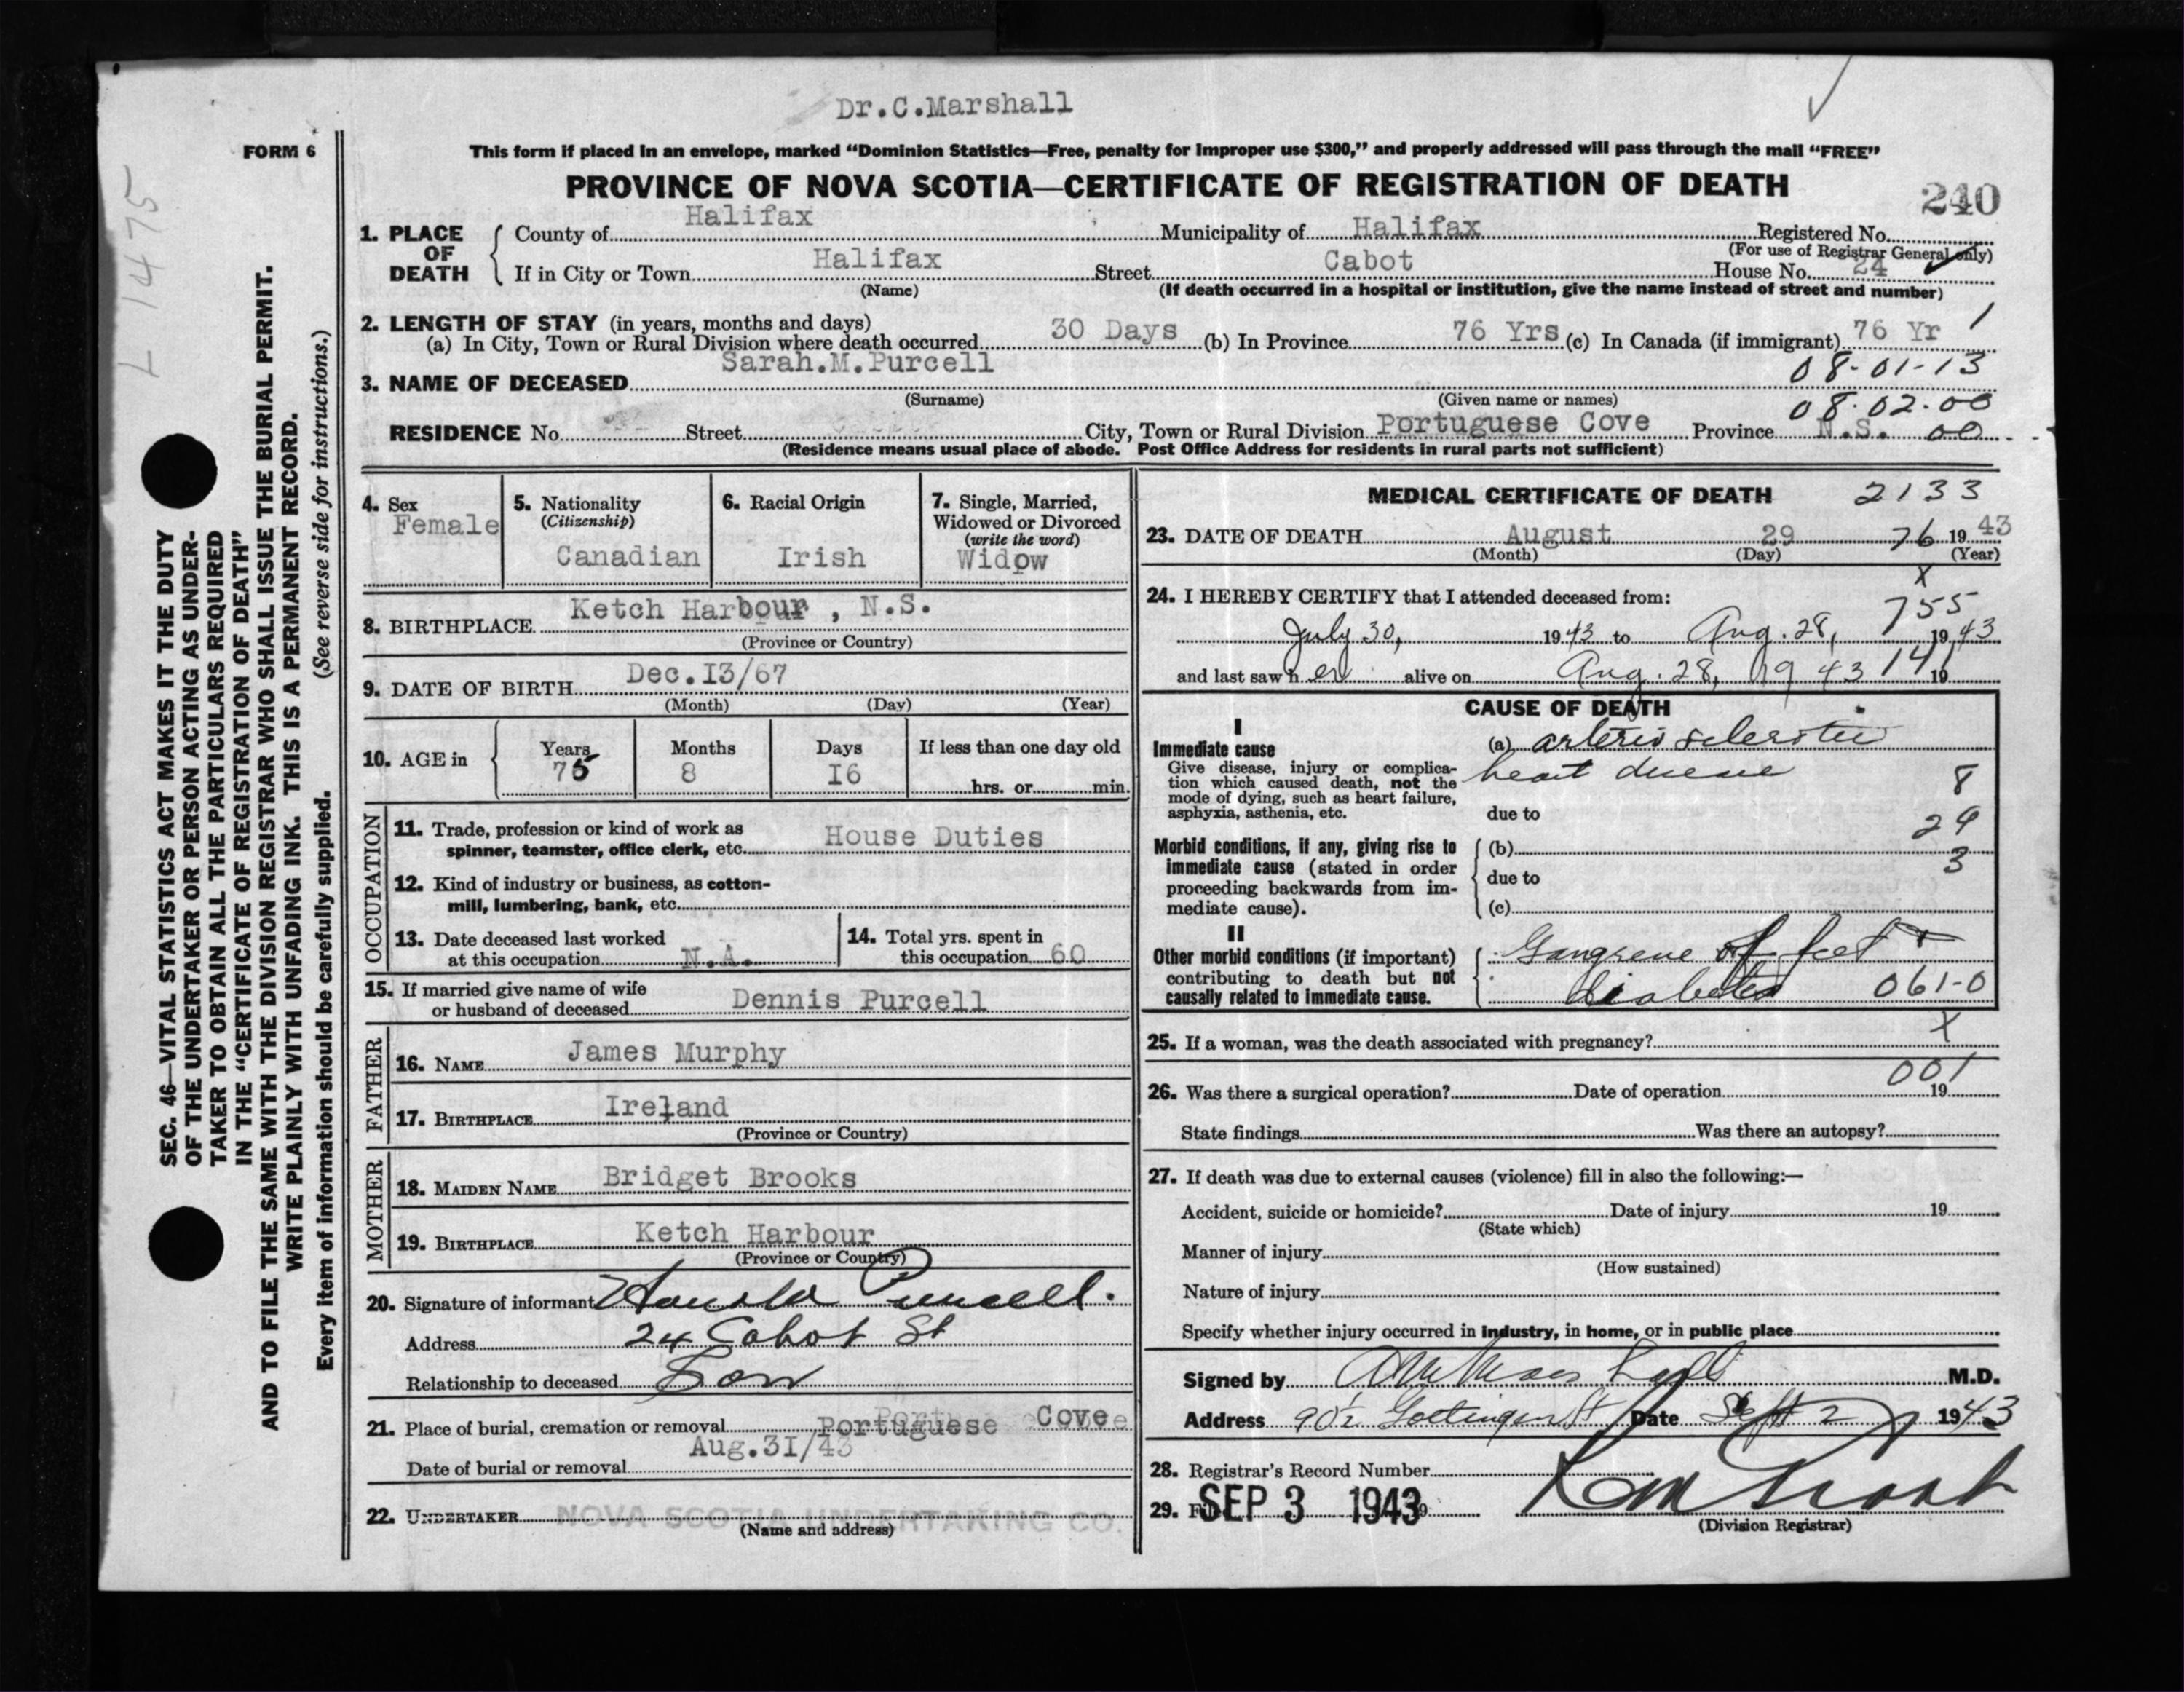 Dr.C.Marshall
L 1475
FORM 6
This form if placed in an envelope, marked “Dominion Statistics—Free, penalty for improper use $300,” and properly addressed will pass through the mail “FREE”
PROVINCE OF NOVA SCOTIA—CERTIFICATE OF REGISTRATION OF DEATH
240
1. PLACE OF DEATH
County of Halifax Municipality of Halifax Registered No.
(For use of Registrar General only)
If in City or Town Halifax Street Cabot House No. 24
(Name) (If death occurred in a hospital or institution, give the name instead of street and number)
2. LENGTH OF STAY (in years, months and days)
(a) In City, Town or Rural Division where death occurred 30 Days (b) In Province 76 Yrs (c) In Canada (if immigrant) 76 Yr 1
08-01-13
3. NAME OF DECEASED Sarah.M.Purcell
(Surname) (Given name or names) 08.02.00
RESIDENCE No. Street City, Town or Rural Division Portuguese Cove Province N.S. 00
(Residence means usual place of abode. Post Office Address for residents in rural parts not sufficient)
4. Sex Female
5. Nationality (Citizenship) Canadian
6. Racial Origin Irish
7. Single, Married, Widowed or Divorced (write the word) Widow
8. BIRTHPLACE Ketch Harbour , N.S.
(Province or Country)
9. DATE OF BIRTH Dec.I3/67
(Month) (Day) (Year)
10. AGE in Years 75 Months 8 Days I6 If less than one day old hrs. or min.
OCCUPATION
11. Trade, profession or kind of work as
spinner, teamster, office clerk, etc. House Duties
12. Kind of industry or business, as cotton-
mill, lumbering, bank, etc.
13. Date deceased last worked
at this occupation N.A.
14. Total yrs. spent in
this occupation 60
15. If married give name of wife
or husband of deceased Dennis Purcell
FATHER
16. NAME James Murphy
17. BIRTHPLACE Ireland
(Province or Country)
MOTHER
18. MAIDEN NAME Bridget Brooks
19. BIRTHPLACE Ketch Harbour
(Province or Country)
20. Signature of informant Harold Purcell.
Address 24 Cabot St
Relationship to deceased Son
21. Place of burial, cremation or removal Portuguese Cove
Date of burial or removal Aug.3I/43
22. UNDERTAKER NOVA SCOTIA UNDERTAKING CO.
(Name and address)
MEDICAL CERTIFICATE OF DEATH 2133
23. DATE OF DEATH August 29 76 1943
(Month) (Day) (Year)
x
24. I HEREBY CERTIFY that I attended deceased from: 755
July 30, 1943 to Aug. 28, 1943
and last saw her alive on Aug. 28, 1943 141 19
CAUSE OF DEATH
I
Immediate cause
Give disease, injury or complica-
tion which caused death, not the
mode of dying, such as heart failure,
asphyxia, asthenia, etc.
(a) arterio sclerotic
heart disease
8
due to
29
Morbid conditions, if any, giving rise to
immediate cause (stated in order
proceeding backwards from im-
mediate cause).
(b)
3
due to
(c)
II
Other morbid conditions (if important)
contributing to death but not
causally related to immediate cause.
Gangrene of feet
diabetes 061-0
25. If a woman, was the death associated with pregnancy? x
001
26. Was there a surgical operation? Date of operation 19
State findings Was there an autopsy?
27. If death was due to external causes (violence) fill in also the following:—
Accident, suicide or homicide? Date of injury 19
(State which)
Manner of injury
(How sustained)
Nature of injury
Specify whether injury occurred in industry, in home, or in public place
Signed by M.D.
Address 90½ Gottingen St Date Sept 2 1943
28. Registrar's Record Number
29. SEP 3 1943
(Division Registrar)
SEC. 46—VITAL STATISTICS ACT MAKES IT THE DUTY
OF THE UNDERTAKER OR PERSON ACTING AS UNDER-
TAKER TO OBTAIN ALL THE PARTICULARS REQUIRED
IN THE “CERTIFICATE OF REGISTRATION OF DEATH”
AND TO FILE THE SAME WITH THE DIVISION REGISTRAR WHO SHALL ISSUE THE BURIAL PERMIT.
WRITE PLAINLY WITH UNFADING INK. THIS IS A PERMANENT RECORD.
Every item of information should be carefully supplied. (See reverse side for instructions.)